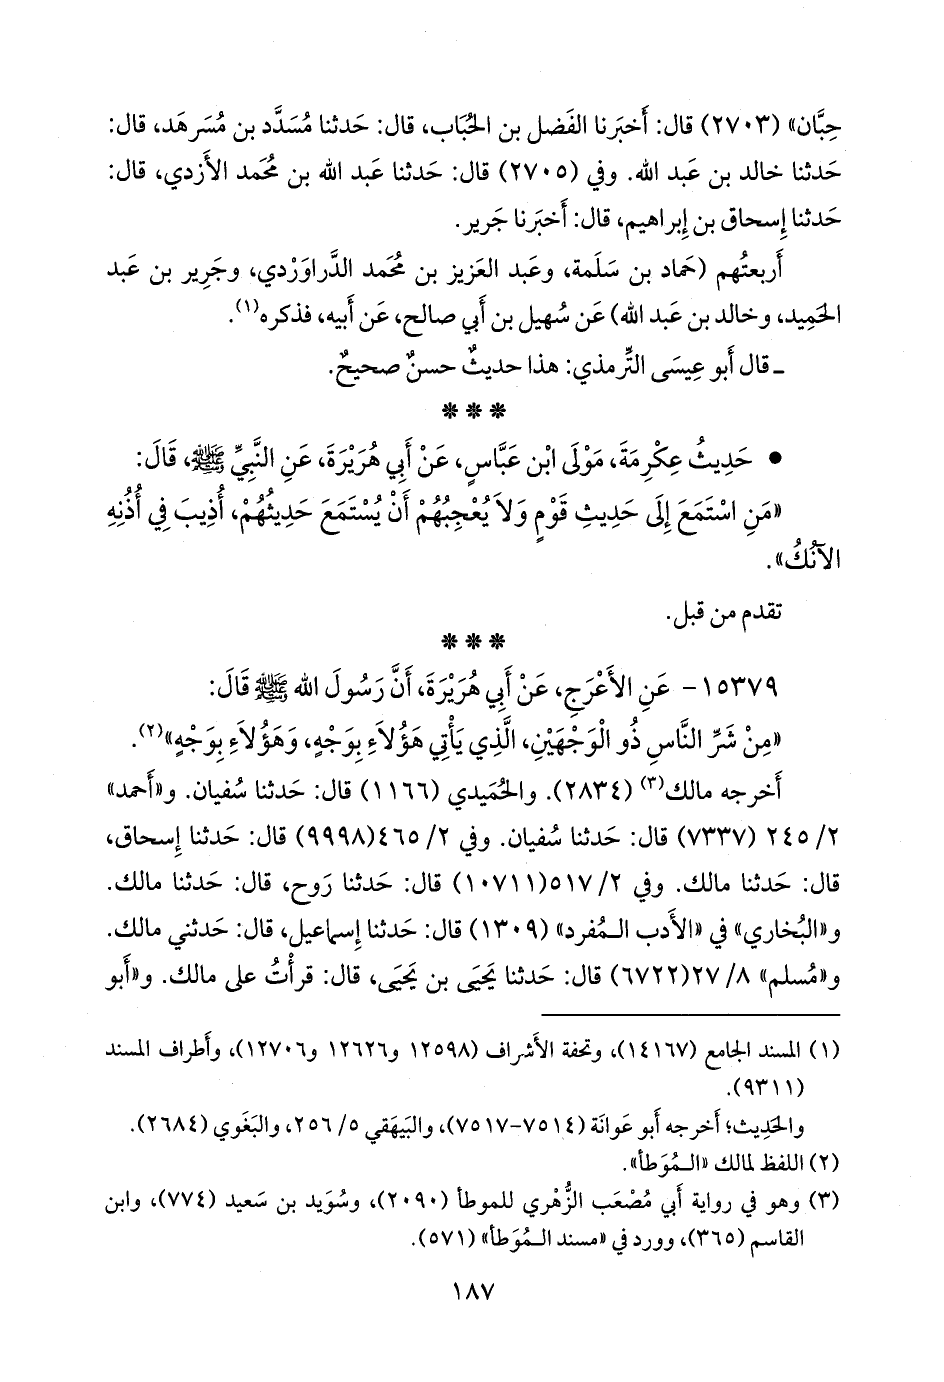 حِبَّان» (٢٧٠٣) قال: أَخبَرنا الفَضل بن الحُبَاب، قال: حَدثنا مُسَدَّد بن مُسَرهَد، قال:
حَدثنا خالد بن عَبد الله. وفي (٢٧٠٥) قال: حَدثنا عَبد الله بن مُحمد الأَزدي، قال:
حَدثنا إِسحاق بن إِبراهيم، قال: أَخبَرنا جَرير.
أَربعتُهم (حَماد بن سَلَمة، وعَبد العَزيز بن مُحمد الدَّراوَرْدي، وجَرِير بن عَبد
الحَمِيد، وخالد بن عَبد الله) عَن سُهيل بن أَبي صالح، عَن أَبيه، فذكره(١).
ـ قال أَبو عِيسَى التِّرمذي: هذا حديثٌ حسنٌ صحيحٌ.
* * *
• حَدِيثُ عِكْرِمَةَ، مَوْلَى ابْنِ عَبَّاسٍ، عَنْ أَبِي هُرَيْرَةَ، عَنِ النَّبِيِّ ﷺ، قَالَ:
«مَنِ اسْتَمَعَ إِلَى حَدِيثِ قَوْمٍ وَلاَ يُعْجِبُهُمْ أَنْ يُسْتَمَعَ حَدِيثُهُمْ، أُذِيبَ فِي أُذُنِهِ
الآنُكُ».
تقدم من قبل.
* * *
١٥٣٧٩- عَنِ الأَعْرَجِ، عَنْ أَبِي هُرَيْرَةَ، أَنَّ رَسُولَ الله ﷺ قَالَ:
«مِنْ شَرِّ النَّاسِ ذُو الْوَجْهَيْنِ، الَّذِي يَأْتِي هَؤُلاَءِ بِوَجْهٍ، وَهَؤُلاَءِ بِوَجْهٍ»(٢).
أَخرجه مالك(٣) (٢٨٣٤). والحُمَيدي (١١٦٦) قال: حَدثنا سُفيان. و«أَحمد»
٢/ ٢٤٥ (٧٣٣٧) قال: حَدثنا سُفيان. وفي ٢/ ٤٦٥(٩٩٩٨) قال: حَدثنا إِسحاق،
قال: حَدثنا مالك. وفي ٢/ ٥١٧(١٠٧١١) قال: حَدثنا رَوح، قال: حَدثنا مالك.
و«البُخاري» في «الأَدب الـمُفرد» (١٣٠٩) قال: حَدثنا إِسماعيل، قال: حَدثني مالك.
و«مُسلم» ٨/ ٢٧(٦٧٢٢) قال: حَدثنا يَحيَى بن يَحيَى، قال: قرأْتُ على مالك. و«أَبو
(١) المسند الجامع (١٤١٦٧)، وتحفة الأشراف (١٢٥٩٨ و١٢٦٢٦ و١٢٧٠٦)، وأَطراف المسند
(٩٣١١).
والحَدِيث؛ أَخرجه أَبو عَوانَة (٧٥١٤-٧٥١٧)، والبَيهَقي ٥/ ٢٥٦، والبَغَوي (٢٦٨٤).
(٢) اللفظ لمالك «الـمُوَطأ».
(٣) وهو في رواية أَبي مُصْعَب الزُّهْري للموطأ (٢٠٩٠)، وسُوَيد بن سَعيد (٧٧٤)، وابن
القاسم (٣٦٥)، وورد في «مسند الـمُوَطأ» (٥٧١).
١٨٧